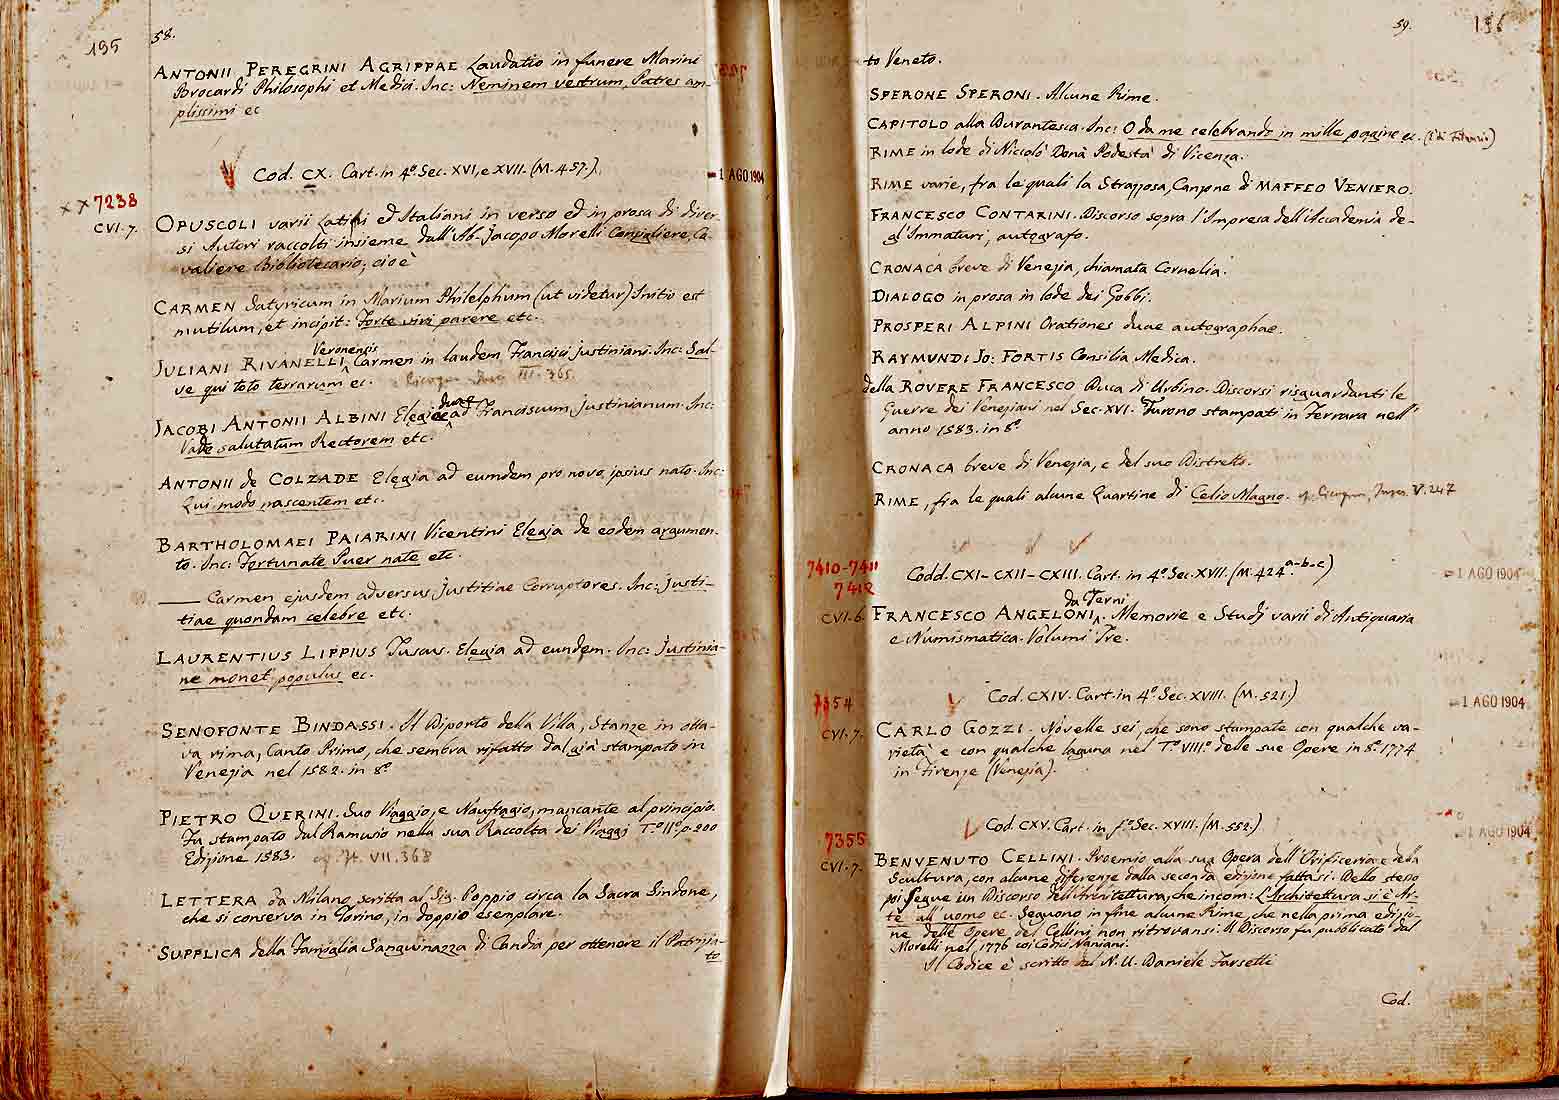 195
58.
ANTONII PEREGRINI AGRIPPAE Laudatio in funere Marini
Brocardi Philosophi et Medici. Inc: Neminem vestrum, Patres am-
plissimi ec
Cod. CX. Cart. in 4º. Sec. XVI, e XVII. (M. 457.)
1 AGO 1904
xx 7238
CVI. 7.
OPUSCOLI varii Latini ed Italiani in verso ed in prosa di diver-
si Autori raccolti insieme dall'Ab. Jacopo Morelli Consigliere, Ca-
valiere Bibliotecario; cioè
CARMEN Satyricum in Marium Philelphum (ut videtur) Initio est
mutilum, et incipit: Forte viri parere etc.
JULIANI RIVANELLI Veronensis Carmen in laudem Francisci Justiniani. Inc: Sal-
ve qui toto terrarum ec. Cicogna III. 365.
JACOBI ANTONII ALBINI Elegiae duae ad Franciscum Justinianum. Inc:
Vade salutatum Rectorem etc.
ANTONII de COLZADE Elegia ad eumdem pro novo ipsius nato. Inc:
Qui modo nascentem etc.
BARTHOLOMAEI PAIARINI Vicentini Elegia de eodem argumen-
to. Inc: Fortunate Puer nate etc.
—— Carmen ejusdem adversus Justitiae Corruptores. Inc: Justi-
tiae quondam celebre etc.
LAURENTIUS LIPPIUS Tuscus. Elegia ad eundem. Inc: Justinia-
ne monet populus ec.
SENOFONTE BINDASSI. Il Diporto della Villa, Stanze in otta-
va rima, Canto Primo, che sembra rifatto dal già stampato in
Venezia nel 1582. in 8º.
PIETRO QUERINI. Suo Viaggio, e Naufragio, mancante al principio.
Fu stampato dal Ramusio nella sua Raccolta dei Viaggi Tº. IIº. p. 200
Edizione 1583. VII. 368
LETTERA da Milano scritta al Sig. Poppio circa la Sacra Sindone,
che si conserva in Torino, in doppio esemplare.
SUPPLICA della Famiglia Sanguinazza di Candia per ottenere il Patrizia-
to
59.
196
to Veneto.
SPERONE SPERONI. Alcune Rime.
CAPITOLO alla Burantesca. Inc: O da me celebrando in mille pagine ec.
RIME in lode di Niccolò Donà Podestà di Vicenza.
RIME varie, fra le quali la Strazzosa, Canzone di MAFFEO VENIERO.
FRANCESCO CONTARINI. Discorso sopra l'Impresa dell'Accademia de-
gl'Immaturi, autografo.
CRONACA breve di Venezia, chiamata Cornelia.
DIALOGO in prosa in lode dei Gobbi.
PROSPERI ALPINI Orationes duae autographae.
RAYMUNDI Jo: FORTIS Consilia Medica.
della ROVERE FRANCESCO Duca di Urbino. Discorsi risguardanti le
Guerre dei Veneziani nel Sec. XVI. Furono stampati in Ferrara nell'
anno 1583. in 8º.
CRONACA breve di Venezia, e del suo Distretto.
RIME, fra le quali alcune Quartine di Celio Magno. cf. Cicogna, V. 247
7410-7411
7412
CVI. 6.
Codd. CXI - CXII - CXIII. Cart. in 4º. Sec. XVII. (M. 424. a-b-c)
1 AGO 1904
FRANCESCO ANGELONI da Terni. Memorie e Studj varii di Antiquaria
e Numismatica. Volumi Tre.
7354
CVI. 7.
Cod. CXIV. Cart. in 4º. Sec. XVIII. (M. 521.)
1 AGO 1904
CARLO GOZZI. Novelle sei, che sono stampate con qualche va-
rietà e con qualche laguna nel Tº. VIIIº. delle sue Opere in 8º. 1774
in Firenze (Venezia).
7355
CVI. 7.
Cod. CXV. Cart. in fº. Sec. XVIII. (M. 552.)
1 AGO 1904
BENVENUTO CELLINI. Proemio alla sua Opera dell'Orificeria e della
Scultura, con alcune diferenze dalla seconda edizione fattasi. Dello stesso
poi segue un Discorso dell'Architettura, che incom: L'Architettura si è Ar-
te all'uomo ec. Seguono in fine alcune Rime, che nella prima edizio-
ne delle Opere del Cellini non ritrovansi. Il Discorso fu pubblicato dal
Morelli nel 1776 coi Codici Naniani.
Il Codice è scritto dal N. U. Daniele Farsetti
Cod.